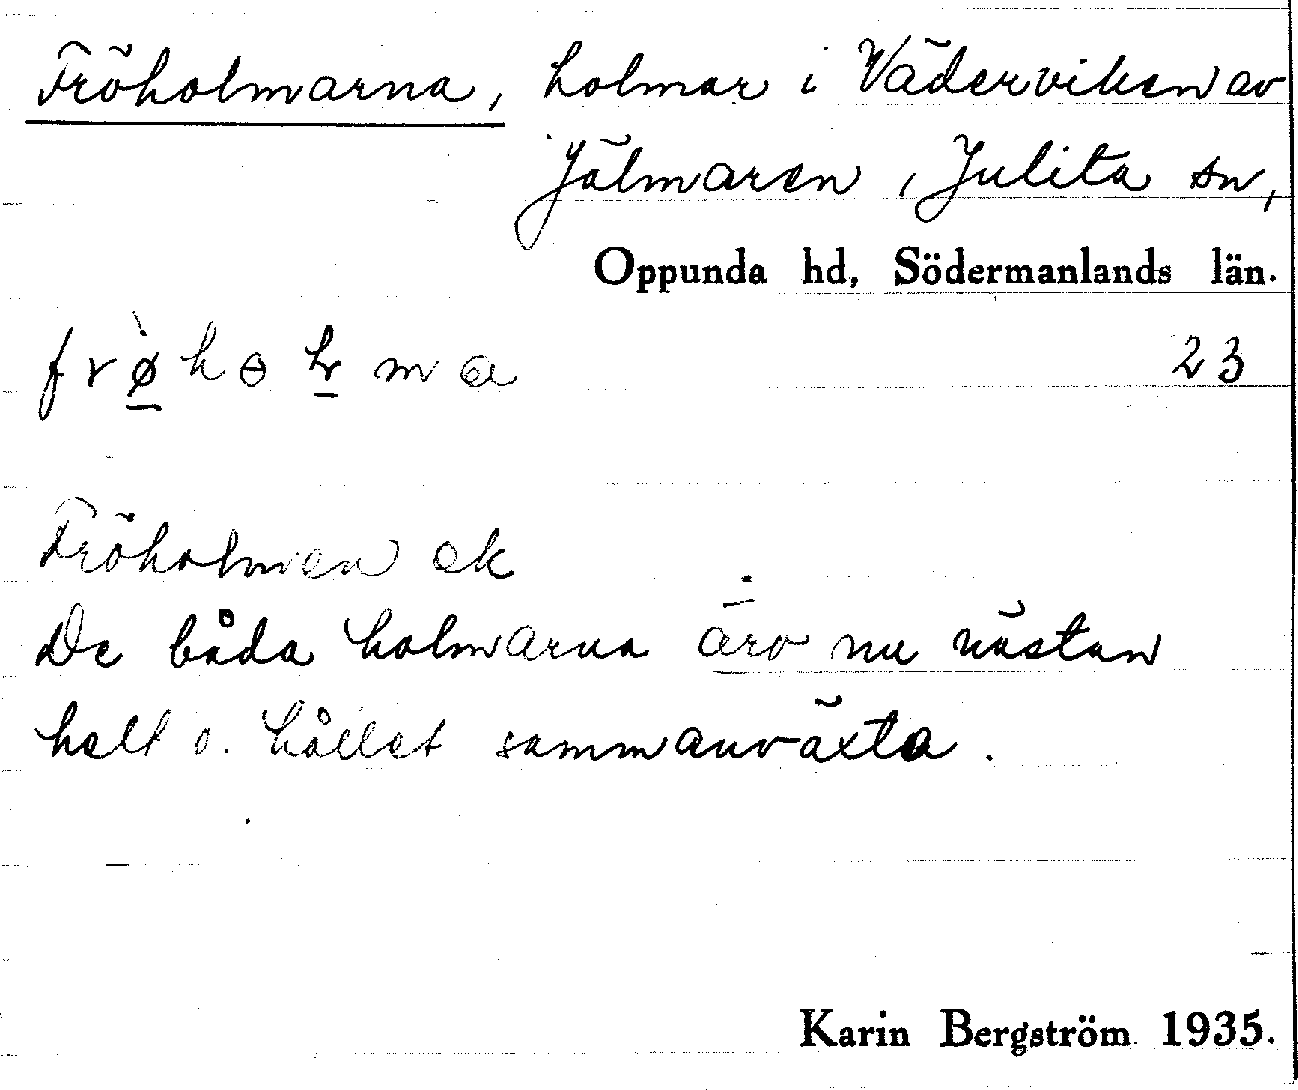 Fröholmarna, holmar i Väderviken av
Jälmaren, Julita sn,
Oppunda hd, Södermanlands län.
23
Fröholmen ek
De båda holmarna äro nu nästan
helt o. hållet sammanväxta.
Karin Bergström 1935.